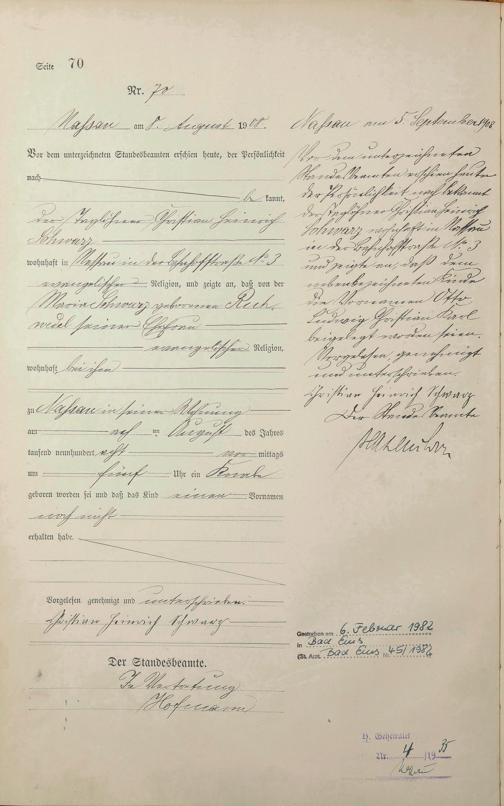 Seite 70
Nr. 70
Nassau am 8. August 1908.
Vor dem unterzeichneten Standesbeamten erschien heute, der Persönlichkeit
nach
be kannt,
der Taglöhner Christian Heinrich
Schwarz
wohnhaft in Nassau in der Bahnhofstraße No 3
evangelischer Religion, und zeigte an, daß von der
Maria Schwarz geborenen
seiner Ehefrau
evangelischer Religion,
wohnhaft bei ihm
zu Nassau in seiner Wohnung
am August des Jahres
tausend neunhundert acht vor mittags
um fünf Uhr ein Knabe
geboren worden sei und daß das Kind einen Vornamen
noch nicht
erhalten habe.
Vorgelesen genehmigt und unterschrieben.
Christian Heinrich Schwarz
Der Standesbeamte.
In Vertretung
Hofmann
Nassau am 5. September 1908
Vor dem unterzeichneten
Standesbeamten erschien heute
der Persönlichkeit nach bekannt
der Taglöhner Christian Heinrich
Schwarz wohnhaft in Nassau
in der Bahnhofstraße No 3
und zeigte an, daß dem
nebenbezeichneten Kinde
die Vornamen Otto
Ludwig Christian Karl
beigelegt worden seien.
Vorgelesen, genehmigt
und unterschrieben.
Christian Heinrich Schwarz
Der Standesbeamte
Gestorben am 6. Februar 1982
in Bad Ems
(St. Amt Bad Ems Nr. 45/1982
Nr. 4 /1935